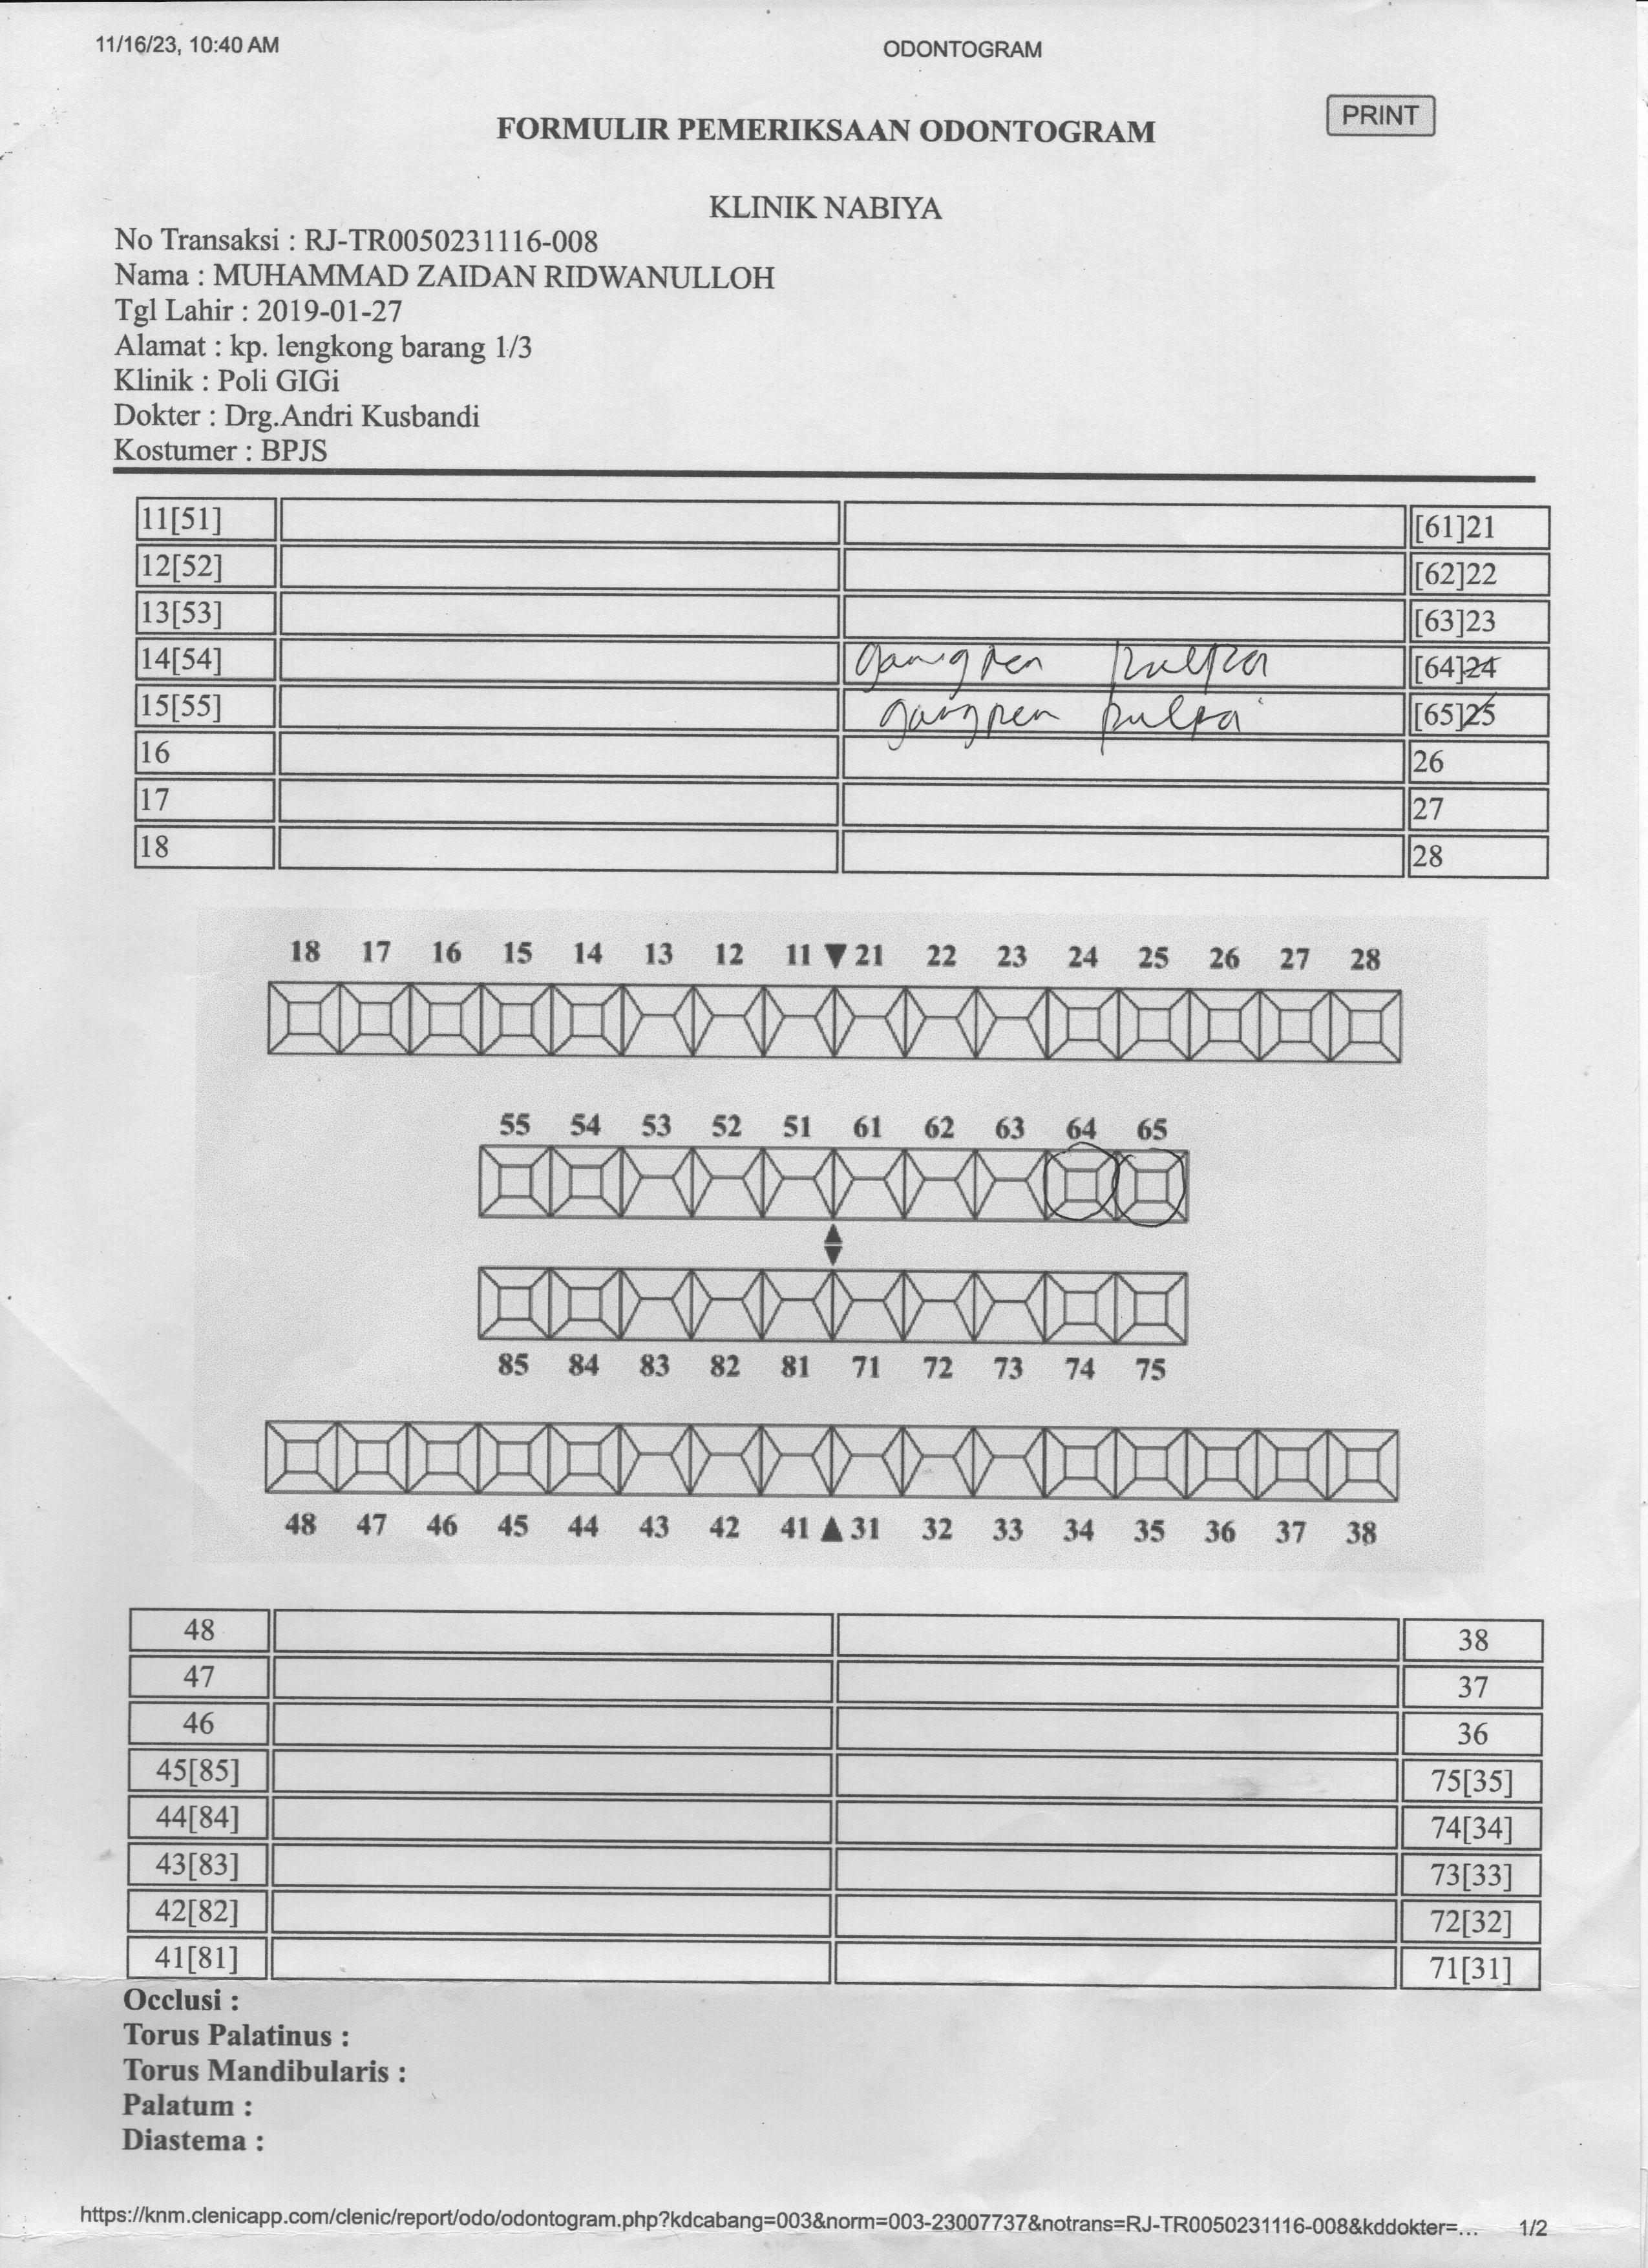 11/16/23, 10:40 AM ODONTOGRAM
PRINT
FORMULIR PEMERIKSAAN ODONTOGRAM
KLINIK NABIYA
No Transaksi : RJ-TR0050231116-008
Nama : MUHAMMAD ZAIDAN RIDWANULLOH
Tgl Lahir : 2019-01-27
Alamat : kp. lengkong barang 1/3
Klinik : Poli GIGi
Dokter : Drg.Andri Kusbandi
Kostumer : BPJS
11[51] [61]21
12[52] [62]22
13[53] [63]23
14[54] gangren pulpa [64]24
15[55] gangren pulpa [65]25
16 26
17 27
18 28
18 17 16 15 14 13 12 11 21 22 23 24 25 26 27 28
55 54 53 52 51 61 62 63 64 65
85 84 83 82 81 71 72 73 74 75
48 47 46 45 44 43 42 41 31 32 33 34 35 36 37 38
48 38
47 37
46 36
45[85] 75[35]
44[84] 74[34]
43[83] 73[33]
42[82] 72[32]
41[81] 71[31]
Occlusi :
Torus Palatinus :
Torus Mandibularis :
Palatum :
Diastema :
https://knm.clenicapp.com/clenic/report/odo/odontogram.php?kdcabang=003&norm=003-23007737&notrans=RJ-TR0050231116-008&kddokter=... 1/2